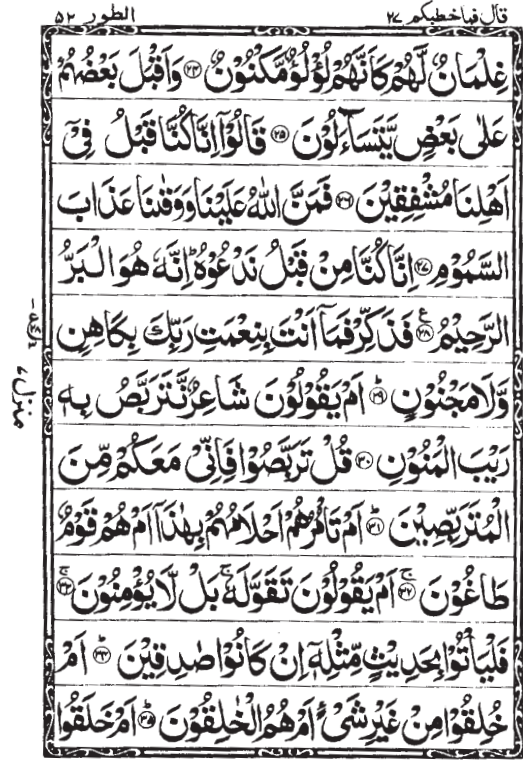 قال فما خطبكم ٢٧ الطور ٥٢
غِلْمَانٌ لَّهُمْ كَاَنَّهُمْ لُؤْلُؤٌ مَّكْنُوْنٌ ﴿۲۴﴾ وَاَقْبَلَ بَعْضُهُمْ
عَلٰى بَعْضٍ يَّتَسَآءَلُوْنَ ﴿۲۵﴾ قَالُوْۤا اِنَّا كُنَّا قَبْلُ فِيْۤ
اَهْلِنَا مُشْفِقِيْنَ ﴿۲۶﴾ فَمَنَّ اللّٰهُ عَلَيْنَا وَوَقٰىنَا عَذَابَ
السَّمُوْمِ ﴿۲۷﴾ اِنَّا كُنَّا مِنْ قَبْلُ نَدْعُوْهُ ؕ اِنَّهٗ هُوَ الْبَرُّ
الرَّحِيْمُ ﴿۲۸﴾ ع فَذَكِّرْ فَمَاۤ اَنْتَ بِنِعْمَتِ رَبِّكَ بِكَاهِنٍ
وَّلَا مَجْنُوْنٍ ﴿۲۹﴾ؕ اَمْ يَقُوْلُوْنَ شَاعِرٌ نَّتَرَبَّصُ بِهٖ
رَيْبَ الْمَنُوْنِ ﴿۳۰﴾ قُلْ تَرَبَّصُوْا فَاِنِّيْ مَعَكُمْ مِّنَ
الْمُتَرَبِّصِيْنَ ﴿۳۱﴾ؕ اَمْ تَاْمُرُهُمْ اَحْلَامُهُمْ بِهٰذَاۤ اَمْ هُمْ قَوْمٌ
طَاغُوْنَ ﴿۳۲﴾ۚ اَمْ يَقُوْلُوْنَ تَقَوَّلَهٗ ۚ بَلْ لَّا يُؤْمِنُوْنَ ﴿۳۳﴾ۚ
فَلْيَاْتُوْا بِحَدِيْثٍ مِّثْلِهٖۤ اِنْ كَانُوْا صٰدِقِيْنَ ﴿۳۴﴾ؕ اَمْ
خُلِقُوْا مِنْ غَيْرِ شَيْءٍ اَمْ هُمُ الْخٰلِقُوْنَ ﴿۳۵﴾ؕ اَمْ خَلَقُوا
منزل ٧